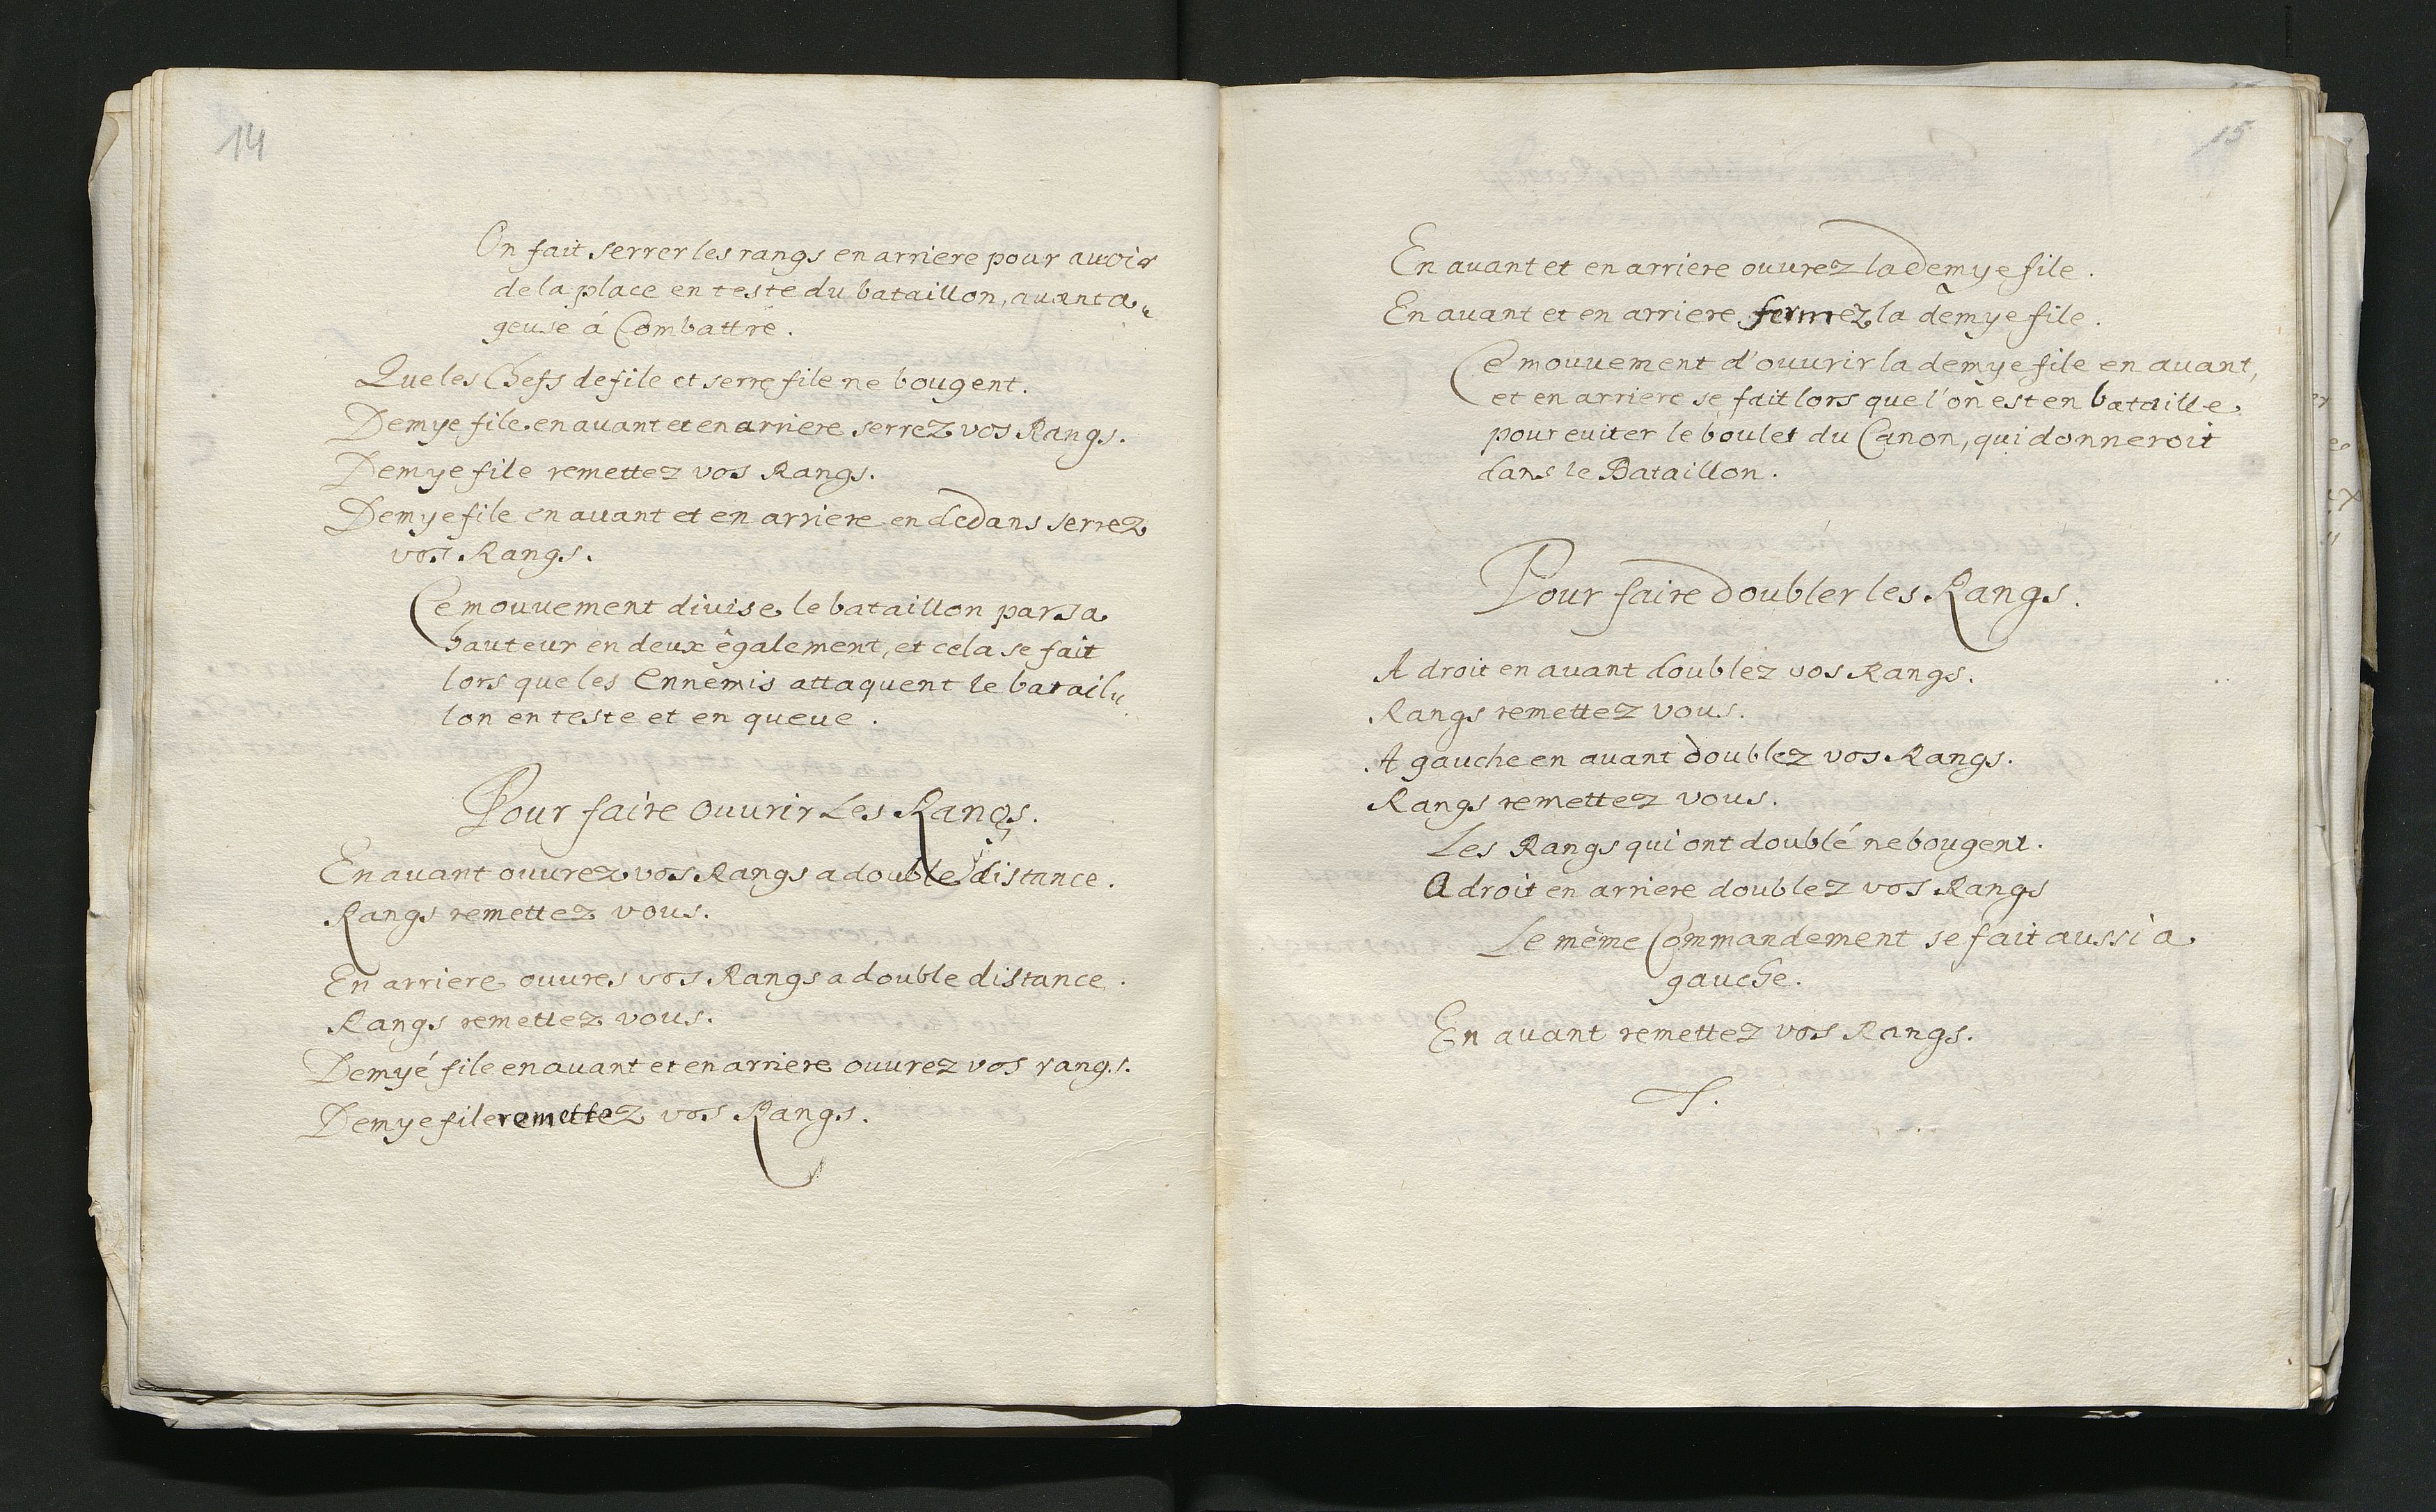 14
On fait serrer les rangs en arriere pour auoir
de la place en teste du bataillon, auanta„
geuse á Combattre.
Que les Chefs de file et serre file ne bougent.
Demye file en auant et en arriere serrez vos Rangs.
Demye file remettez vos Rangs.
Demye file en auant et en arriere en dedans serrez
vos Rangs.
Ce mouuement diuise le bataillon par sa
hauteur en deux également, et cela se fait
lors que les Ennemis attaquent le batail„
lon en teste et en queue.
Pour faire ouurir Les Rangs.
En auant ouurez vos Rangs a double distance.
Rangs remettez vous.
En arriere ouures vos Rangs a double distance.
Rangs remettez vous.
Demyé file en auant et en arriere ouurez vos rangs.
Demye file remettez vos Rangs.
15
En auant et en arriere ouurez la demye file.
En auant et en arriere fermez la demye file.
Ce mouuement d'ouurir la demye file en auant,
et en arriere se fait lors que l'on est en bataille
pour euiter le boulet du Canon, qui donneroit
dans le Bataillon.
Pour faire doubler les Rangs.
A droit en auant doublez vos Rangs.
Rangs remettez vous.
A gauche en auant doublez vos Rangs.
Rangs remettez vous.
Les Rangs qui ont doublé ne bougent.
A droit en arriere doublez vos Rangs
Le même Commandement se fait aussi a
gauche.
En auant remettez vos Rangs.